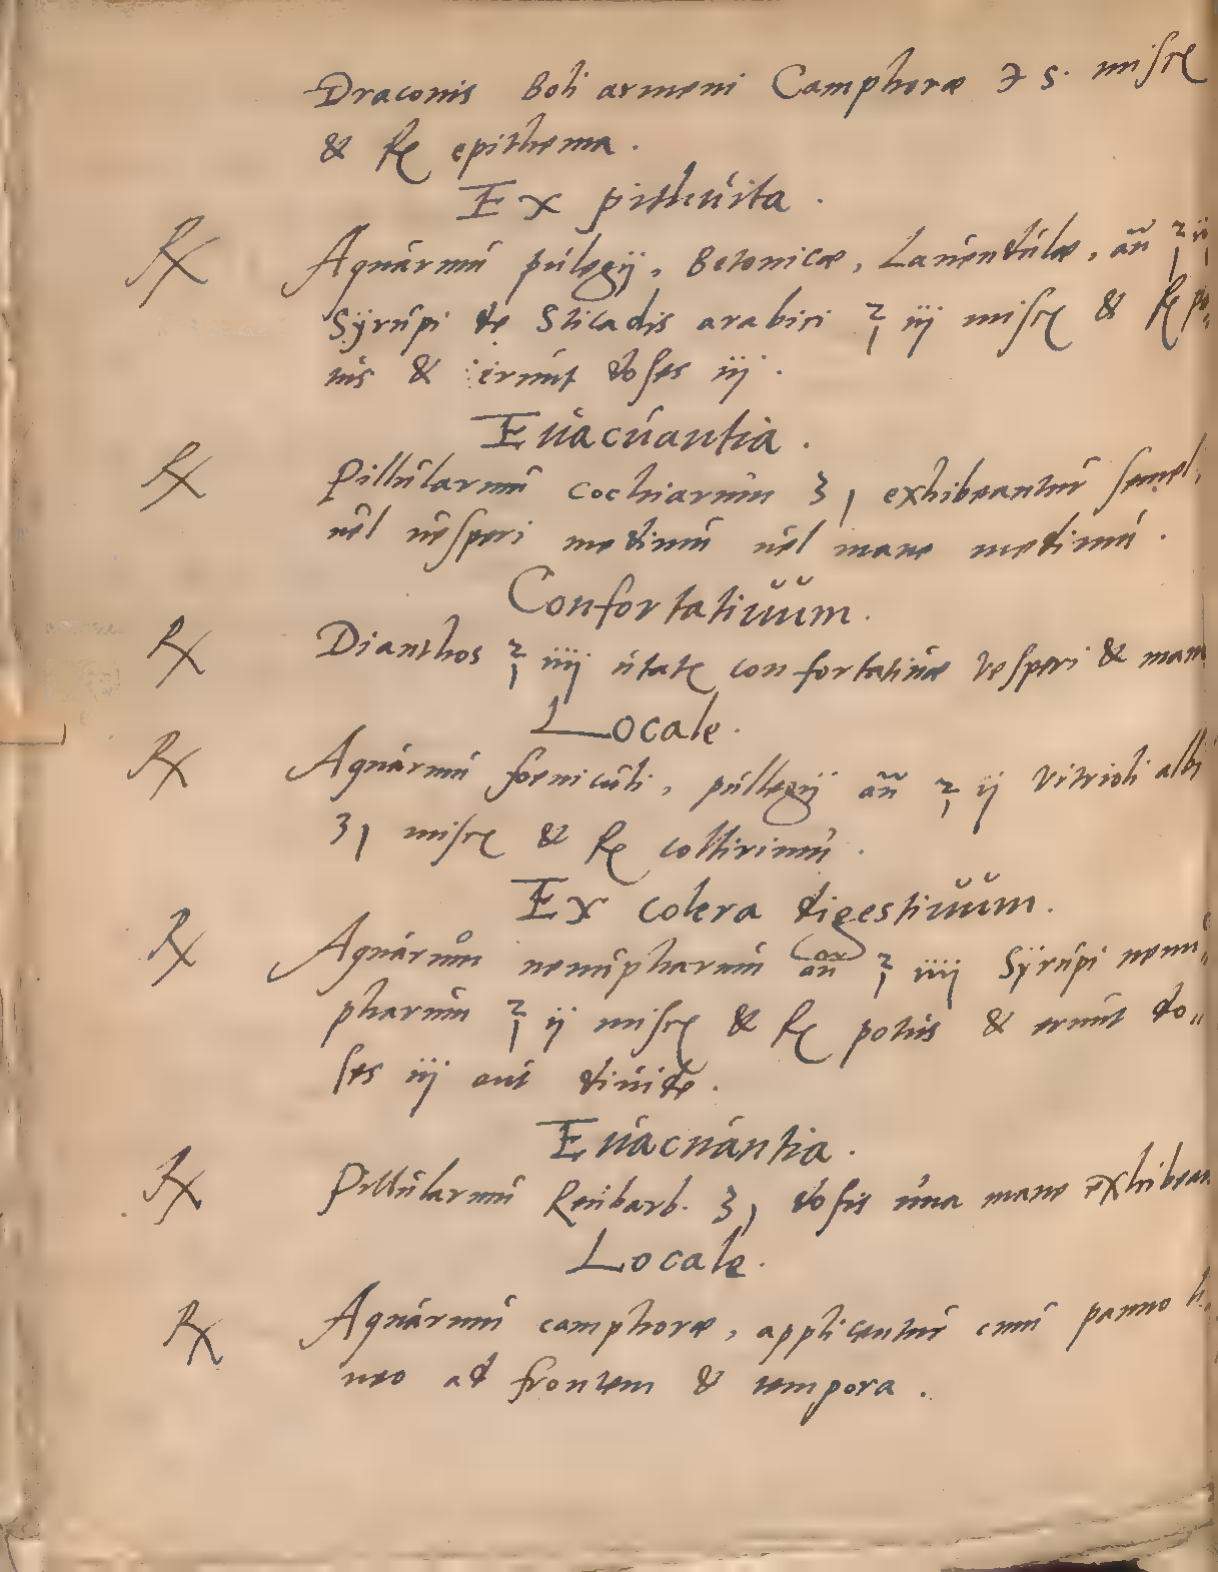 Draconis Boli armeni Camphoræ ℈ s. misce
& fę epithema.
Ex pithuita.
℞ Aquarum pulegij, Betonicæ, Lavendulæ, añ ℥ ij
Syrupi de Sticadis arabici ℥ iij misce & fę po„
tus & erunt doses iij.
Evacuantia.
℞ Pillularum cochiarum ʒ j exhibeantur semel,
vel vesperi medium vel mane medium.
Confortativum.
℞ Dianthos ℥ iiij utatę confortativæ vesperi & mane
Locale.
℞ Aquarum foeniculi, pullegij añ ℥ ij vitrioli albi
ʒ j misce & fę collirium.
Ex colera digestivum.
℞ Aquarum nenupharum añ ℥ iiij Syrupi nenu„
pharum ℥ ij misce & fę potus & erunt do„
ses iij aut divide.
Evacuantia.
℞ Pillularum Reubarb. ʒ j dosis una mane exhibean
Locale.
℞ Aquarum camphoræ, applicentur cum panno li„
neo ad frontem & tempora.